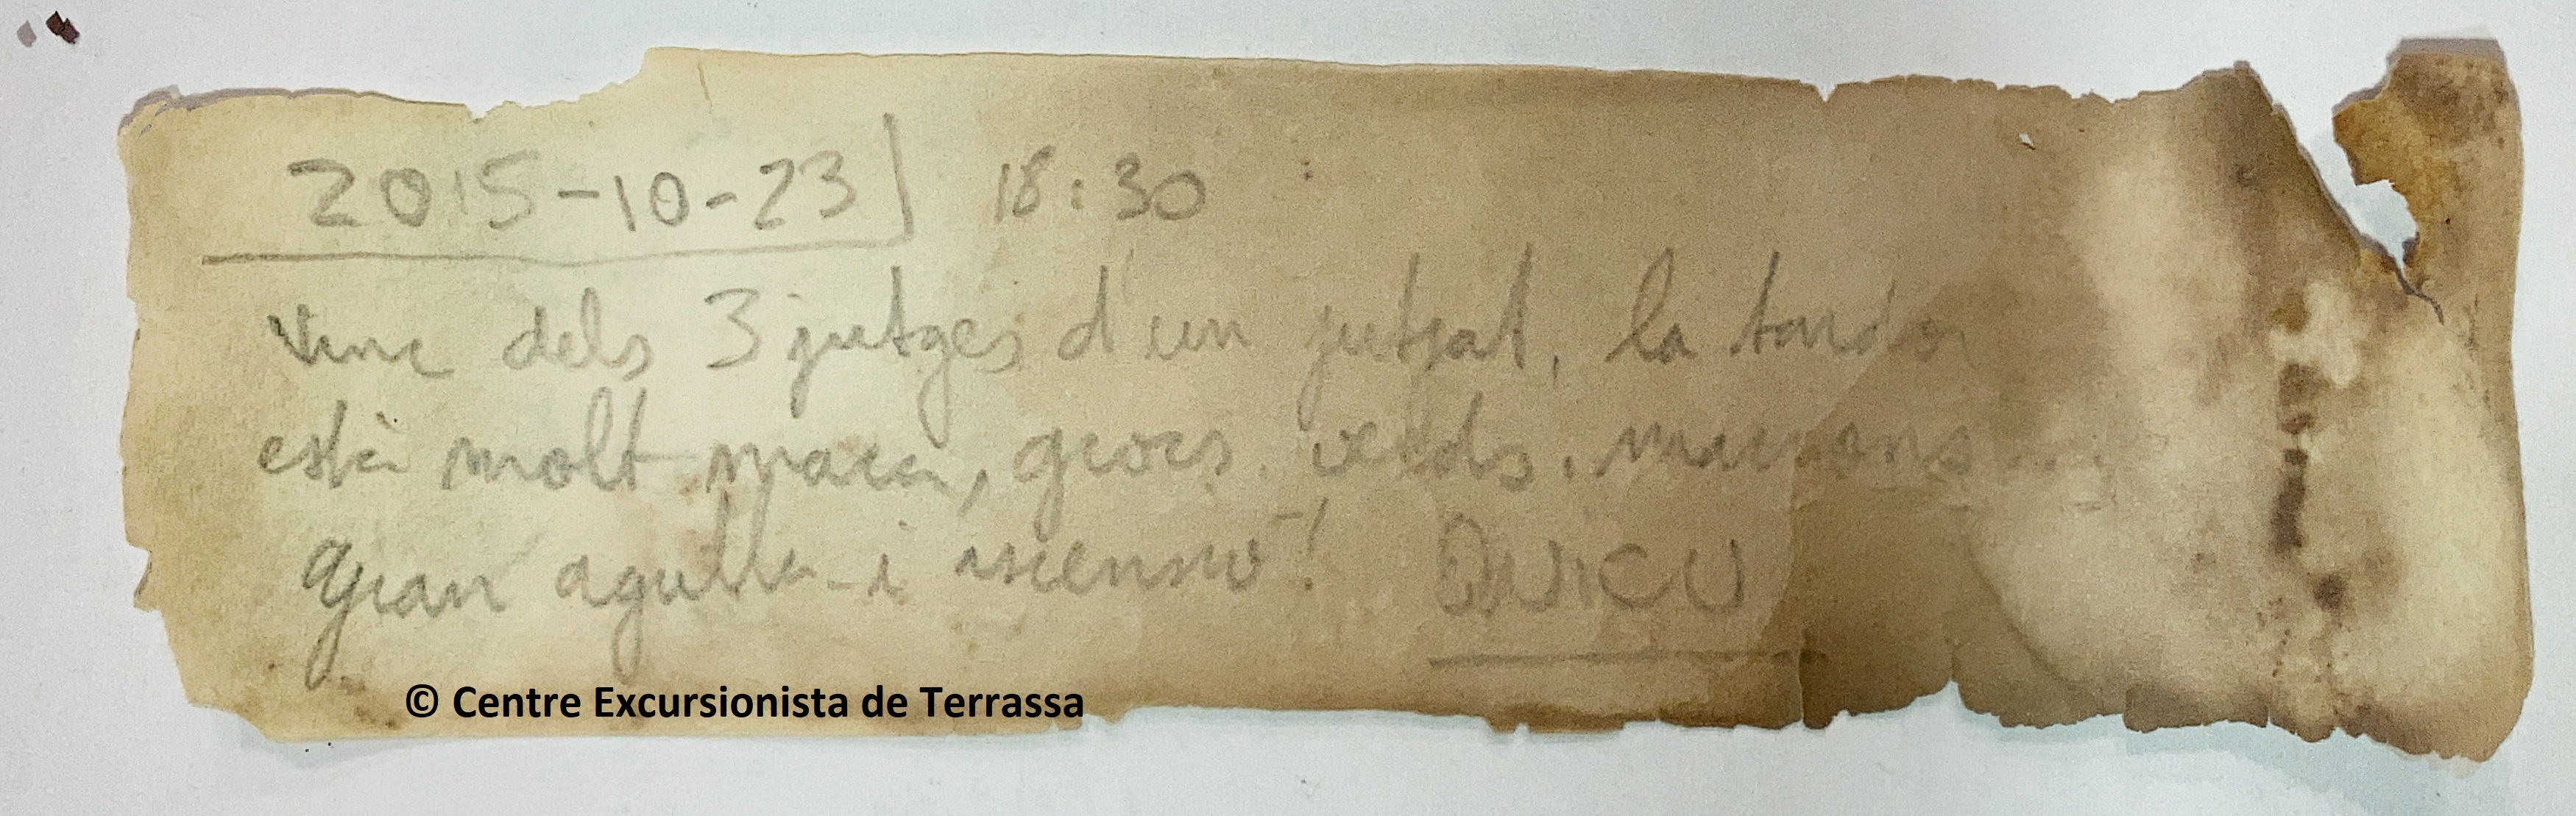 2015-10-23 18:30
Vinc dels 3 jutges d'un jutjat, la tardor
està molt maca, grocs, verds, marrons...
gran agulla i ascensió! QUICU
© Centre Excursionista de Terrassa